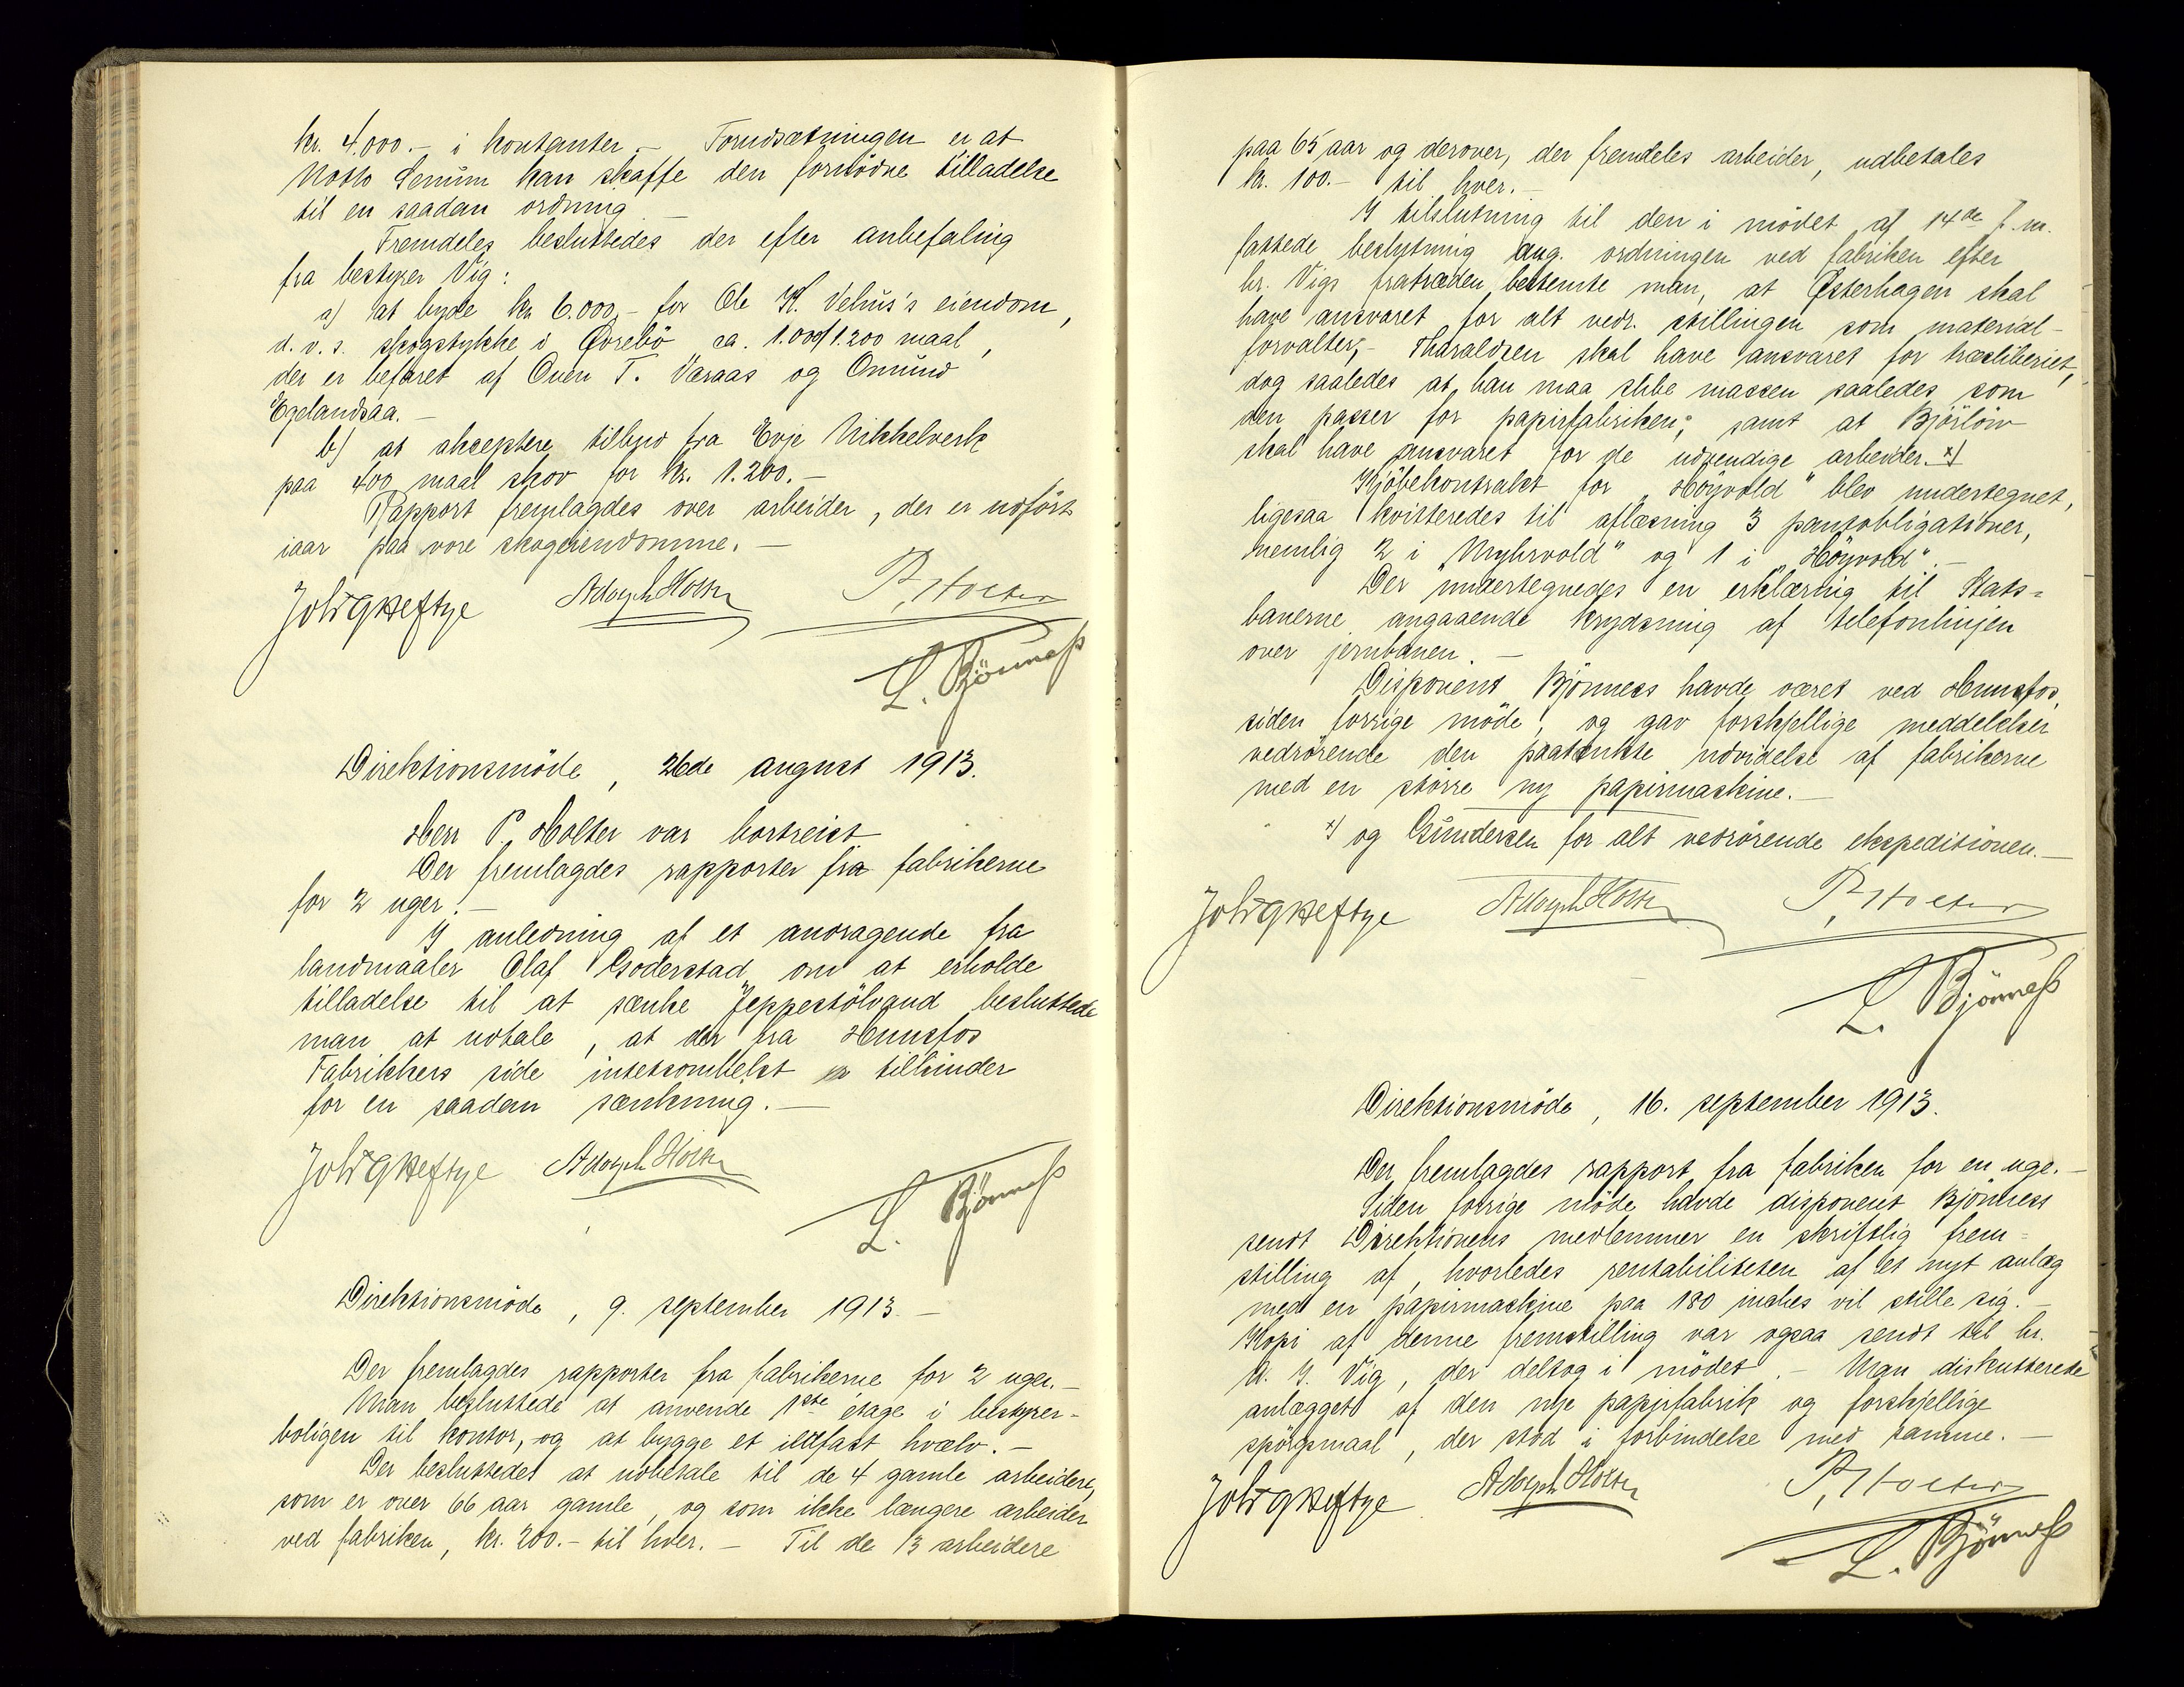 kr. 4.000.- i kontanter.- Forudsætningen er at
Notto Senum kan skaffe den fornödne tilladelse
til en saadan ordning –
Fremdeles besluttedes der efter anbefaling
fra bestyrer Vig:
a) at byde kr 6.000,- for Ole K. Vehus's eiendom,
d.v.s. skogstykke i Øvrebö ca. 1.000/1.200 maal,
der er befaret af Oven T. Væraas og Omund
Egelandsaa.-
b) at akceptere tilbud fra Evje Nikkelverk
paa 400 maal skov for kr. 1.200.-
Rapport fremlagdes over arbeider, der er udfört
iaar paa vore skogeiendomme. –
Joh. Heftye Adolph Holter P. Holter
L. Bjönness
Direktionsmöde, 26de august 1913.
Herr P. Holter var bortreist
Der fremlagdes rapporter fra fabrikerne
for 2 uger.-
I anledning af et andragende fra
landmaaler Olaf Goderstad om at erholde
tilladelse til at sænke Jeppestölvand besluttede
man at udtale, at der fra Hunsfos
Fabrikkers side intetsomhelst er tilhinder
for en saadan sænkning. –
Joh. Heftye Adolph Holter
L. Bjönness
Direktionsmöde, 9. september 1913.-
Der fremlagdes rapporter fra fabrikerne for 2 uger.-
Man besluttede at anvende 1ste étage i bestyrer-
boligen til kontor, og at bygge et ildfast hvælv. –
Der besluttedes at udbetale til de 4 gamle arbeidere,
som er over 66 aar gamle, og som ikke længere arbeider
ved fabriken, kr. 200.- til hver. – Til de 13 arbeidere
paa 65 aar og derover, der fremdeles arbeider, udbetales
kr. 100.- til hver.-
I tilslutning til den i mödet af 14de f.m.
fattede beslutning ang. ordningen ved fabriken efter
hr. Vigs fratræden bestemte man, at Østerhagen skal
have ansvaret for alt vedr. stillingen som material-
forvalter,- Tharaldsen skal have ansvaret for træsliberiet,
dog saaledes at han maa slibe massen saaledes som
den passer for papirfabriken; samt at Björlöw
skal have ansvaret for de udvendige arbeider. x)
Kjöbekontrakt for "Höyvold" blev undertegnet,
ligesaa kvitteredes til aflæsning 3 pantobligationer,
nemlig 2 i "Myhrvold" og 1 i "Höyvold".-
Der undertegnedes en erklæring til Stats=
banerne angaaende krydsning af telefonlinjen
over jernbanen. –
Disponent Bjönness havde været ved Hunsfos,
siden forrige möde, og gav forskjellige meddelelser
vedrörende den paatænkte udvidelse af fabrikerne
med en större ny papirmaskine.-
x) og Gundersen for alt vedrörende ekspeditionen.-
Joh. Heftye Adolph Holter P. Holter
L. Bjönness
Direktionsmöde, 16. september 1913.
Der fremlagdes rapport fra fabriken for en uge.-
Siden forrige möde havde disponent Bjönness
sendt Direktionens medlemmer en skriftlig frem=
stilling af, hvorledes rentabiliteten af et nyt anlæg
med en papirmaskine paa 180 inches vil stille sig. –
Kopi af denne fremstilling var ogsaa sendt til hr.
N. J. Vig, der deltog i mödet. – Man diskutterede
anlægget af den nye papirfabrik og forskjellige
spörgsmaal, der stod i forbindelse med samme. –
Joh. Heftye Adolph Holter P. Holter
L. Bjönness